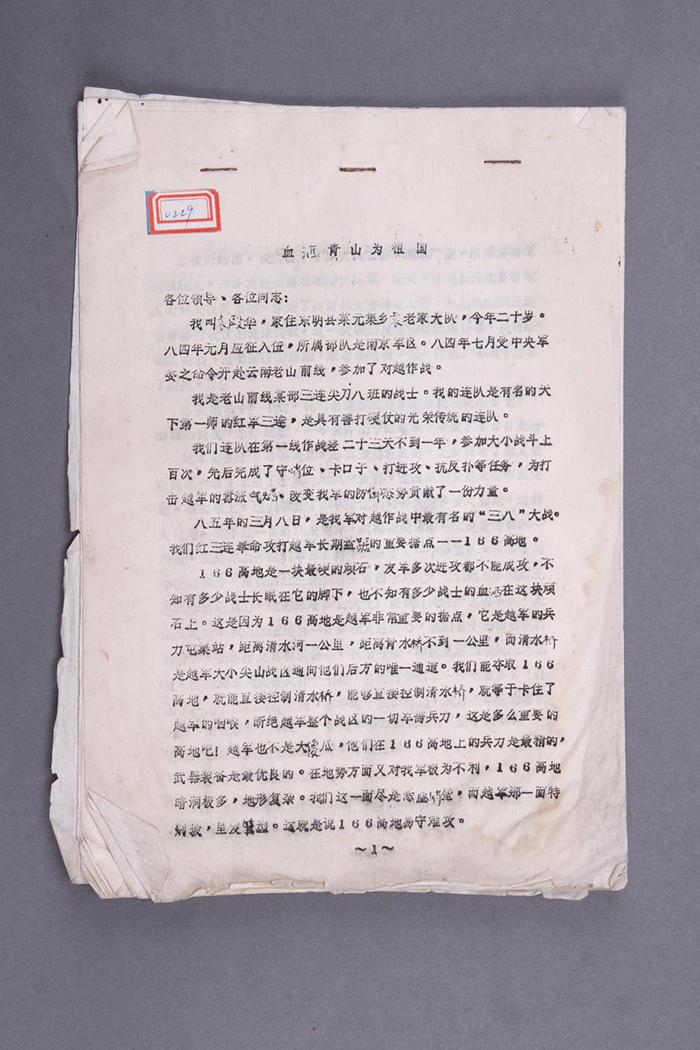 0229
血洒青山为祖国
各位领导、各位同志:
我叫袁殿华,家住东明县菜元集乡袁老家大队,今年二十岁。
八四年元月应征入伍,所属部队是南京军区。八四年七月受中央军
委之命令开赴云南老山前线,参加了对越作战。
我是老山前线某部三连尖刀八班的战士。我的连队是有名的天
下第一师的红军三连,是具有善打硬仗的光荣传统的连队。
我们连队在第一线作战差二十三天不到一年,参加大小战斗上
百次,先后完成了守哨位、卡口子、打进攻、抗反扑等任务,为打
击越军的嚣涨气焰、改变我军的防御态势贡献了一份力量。
八五年的三月八日,是我军对越作战中最有名的“三八”大战。
我们红三连奉命攻打越军长期盘踞的重要据点——166高地。
166高地是一块最硬的顽石,友军多次进攻都不能成攻,不
知有多少战士长眠在它的脚下,也不知有多少战士的血洒在这块顽
石上。这是因为166高地是越军非常重要的据点,它是越军的兵
力屯集站,距离清水河一公里,距离青水桥不到一公里,而清水桥
是越军大小尖山战区通向他们后方的唯一通道。我们能夺取166
高地,就能直接控制清水桥,能够直接控制清水桥,就等于卡住了
越军的咽喉,断绝越军整个战区的一切军需兵力,这是多么重要的
高地吧!越军也不是大傻瓜,他们在166高地上的兵力是最精的,
武器装备是最优良的。在地势方面又对我军极为不利,166高地
暗洞极多,地形复杂。我们这一面尽是悬崖峭壁,而越军那一面特
别坡,里发。这就是说166高地易守难攻。
~1~